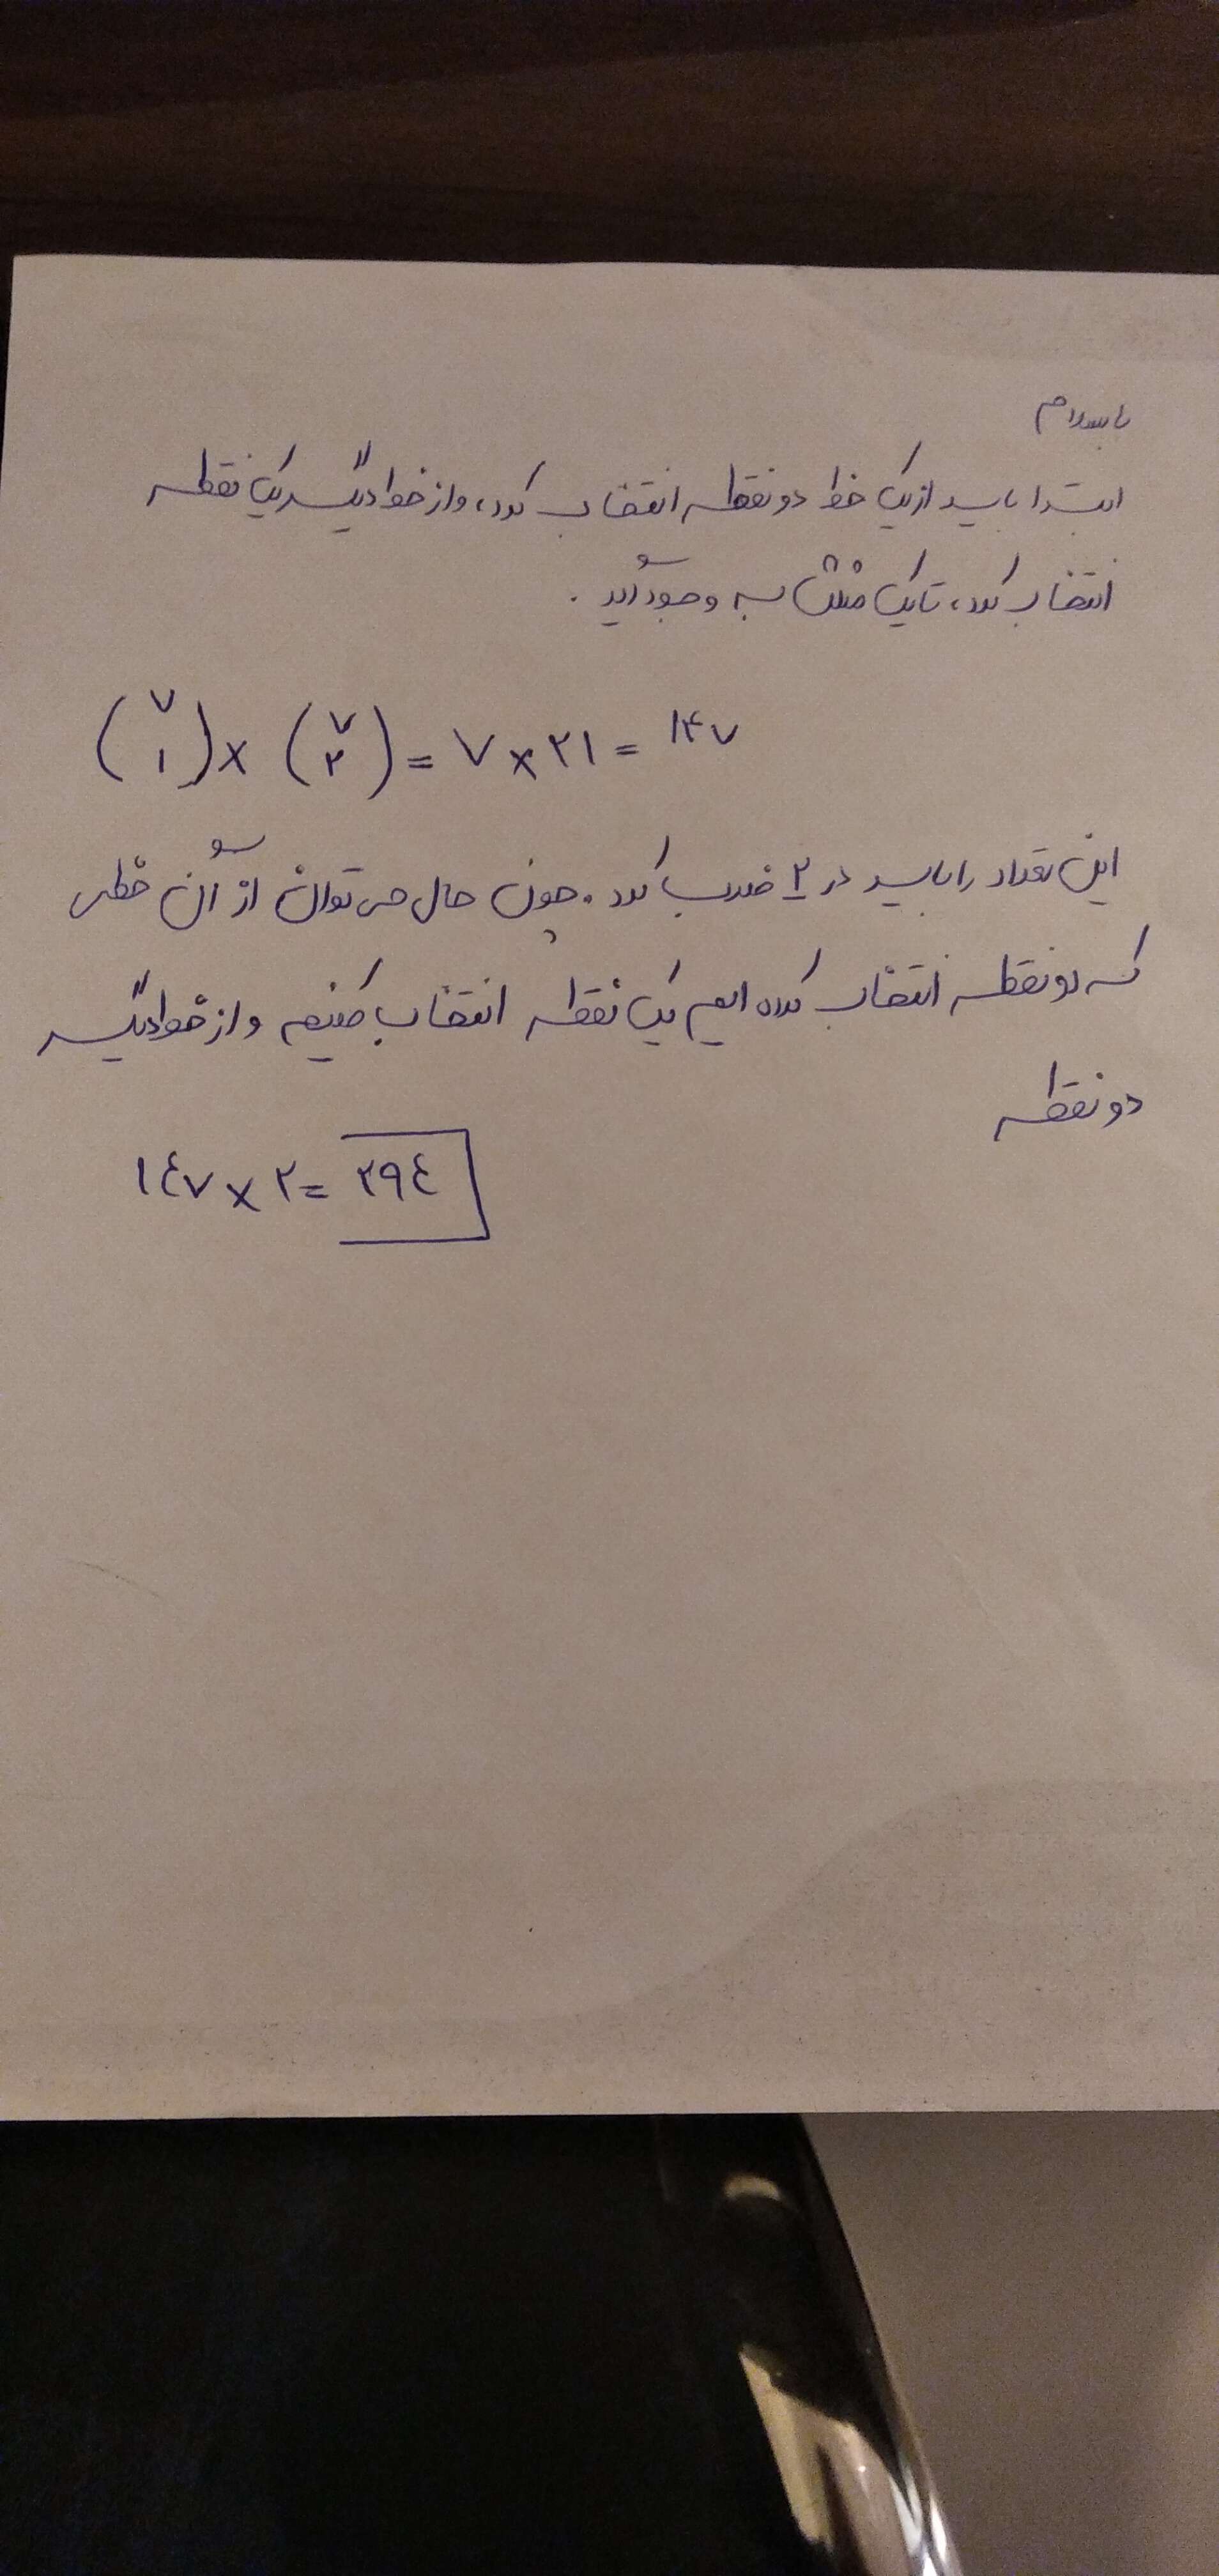 باسلام
ابتدا باید از یک خط دو نقطه انتخاب کرد، و از خط دیگر یک نقطه
انتخاب کرد، تا یک مثلث به وجود آید .
(۷ ۱) × (۷ ۲) = ۷ × ۲۱ = ۱۴۷
این تعداد را باید در ۲ ضرب کرد . چون حال می توان از آن خطی
که دو نقطه انتخاب کرده ایم یک نقطه انتخاب کنیم و از خط دیگر
دو نقطه
۱٤۷ × ۲ = ۲۹٤